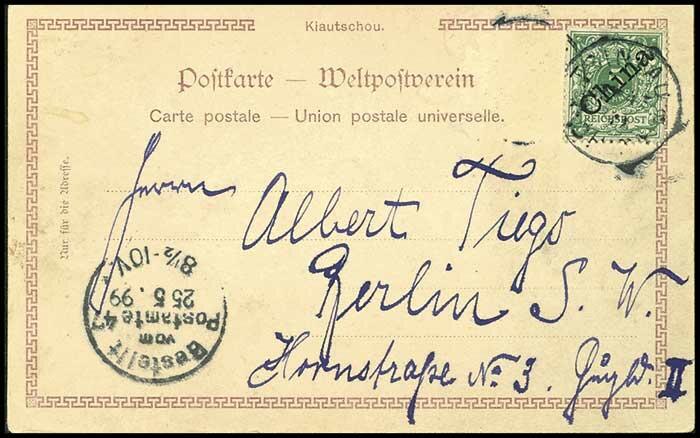 Kiautschou.
Postkarte — Weltpostverein
Carte postale — Union postale universelle.
China
REICHSPOST
Nur für die Adresse.
Herrn
Albert Tiego
Berlin S. W.
Hornstraße No 3. II
Bestellt
vom
Postamte 47
25 5. 99
8½-10V.